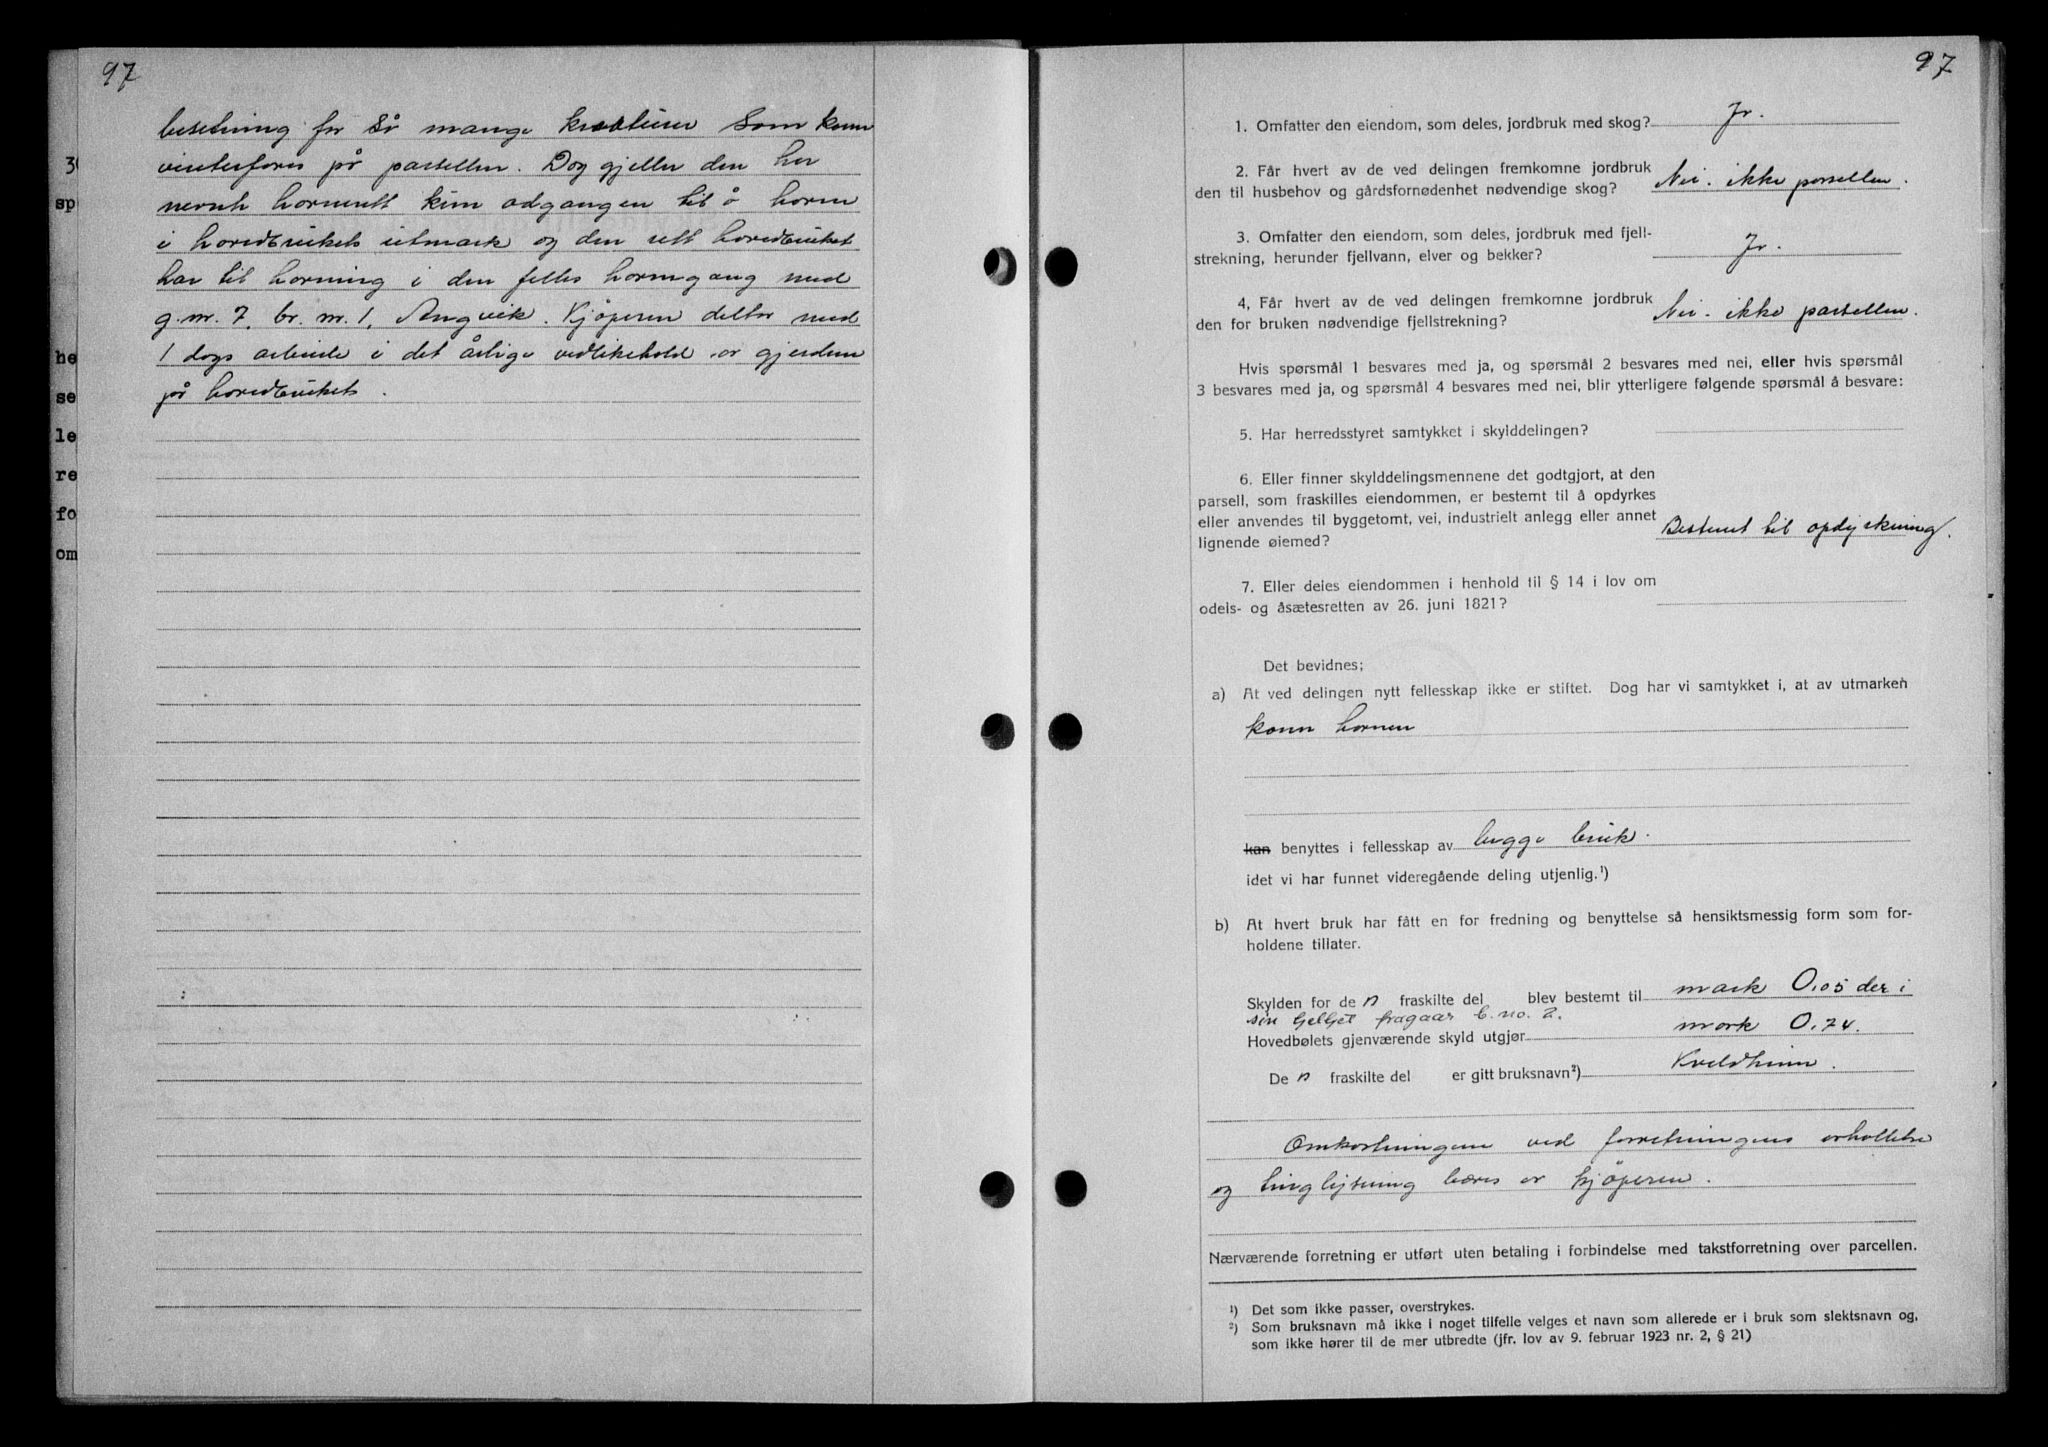 97
besetning for så mange kreaturer som kann
vinterfores på parsellen. Dog gjeller den her
nevnte havnerett kun adgangen til å havne
i hovedbrukets utmark og den rett hovedbruket
har til havning i den felles havnegang med
g.nr. 7, br. nr. 1, Angvik. Kjöperen deltar med
1 dags arbeide i det årlige vedlikehold av gjerdene
på hovedbruket.
3
sp
he
se
le
re
fo
om
97
1. Omfatter den eiendom, som deles, jordbruk med skog? Ja.
2. Får hvert av de ved delingen fremkomne jordbruk
den til husbehov og gårdsfornødenhet nødvendige skog? Nei. ikke parsellen.
3. Omfatter den eiendom, som deles, jordbruk med fjell-
strekning, herunder fjellvann, elver og bekker? Ja.
4. Får hvert av de ved delingen fremkomne jordbruk
den for bruken nødvendige fjellstrekning? Nei. ikke parsellen.
Hvis spørsmål 1 besvares med ja, og spørsmål 2 besvares med nei, eller hvis spørsmål
3 besvares med ja, og spørsmål 4 besvares med nei, blir ytterligere følgende spørsmål å besvare:
5. Har herredsstyret samtykket i skylddelingen?
6. Eller finner skylddelingsmennene det godtgjort, at den
parsell, som fraskilles eiendommen, er bestemt til å opdyrkes
eller anvendes til byggetomt, vei, industrielt anlegg eller annet
lignende øiemed? Bestemt til opdyrkning.
7. Eller deles eiendommen i henhold til § 14 i lov om
odels- og åsætesretten av 26. juni 1821?
Det bevidnes;
a) At ved delingen nytt fellesskap ikke er stiftet. Dog har vi samtykket i, at av utmarken
kann havnen
kan benyttes i fellesskap av begge bruk.
idet vi har funnet videregående deling utjenlig.¹)
b) At hvert bruk har fått en for fredning og benyttelse så hensiktsmessig form som for-
holdene tillater.
Skylden for de n fraskilte del blev bestemt til mark 0.05 der i
sin helhet fragaar b.no. 2.
Hovedbølets gjenværende skyld utgjør mark 0.74.
De n fraskilte del er gitt bruksnavn²) Kveldheim.
Omkostningene ved forretningens avholdelse
og tinglysning bæres av kjöperen.
Nærværende forretning er utført uten betaling i forbindelse med takstforretning over parcellen.
¹) Det som ikke passer, overstrykes.
²) Som bruksnavn må ikke i noget tilfelle velges et navn som allerede er i bruk som slektsnavn og,
som ikke hører til de mer utbredte (jfr. lov av 9. februar 1923 nr. 2, § 21)